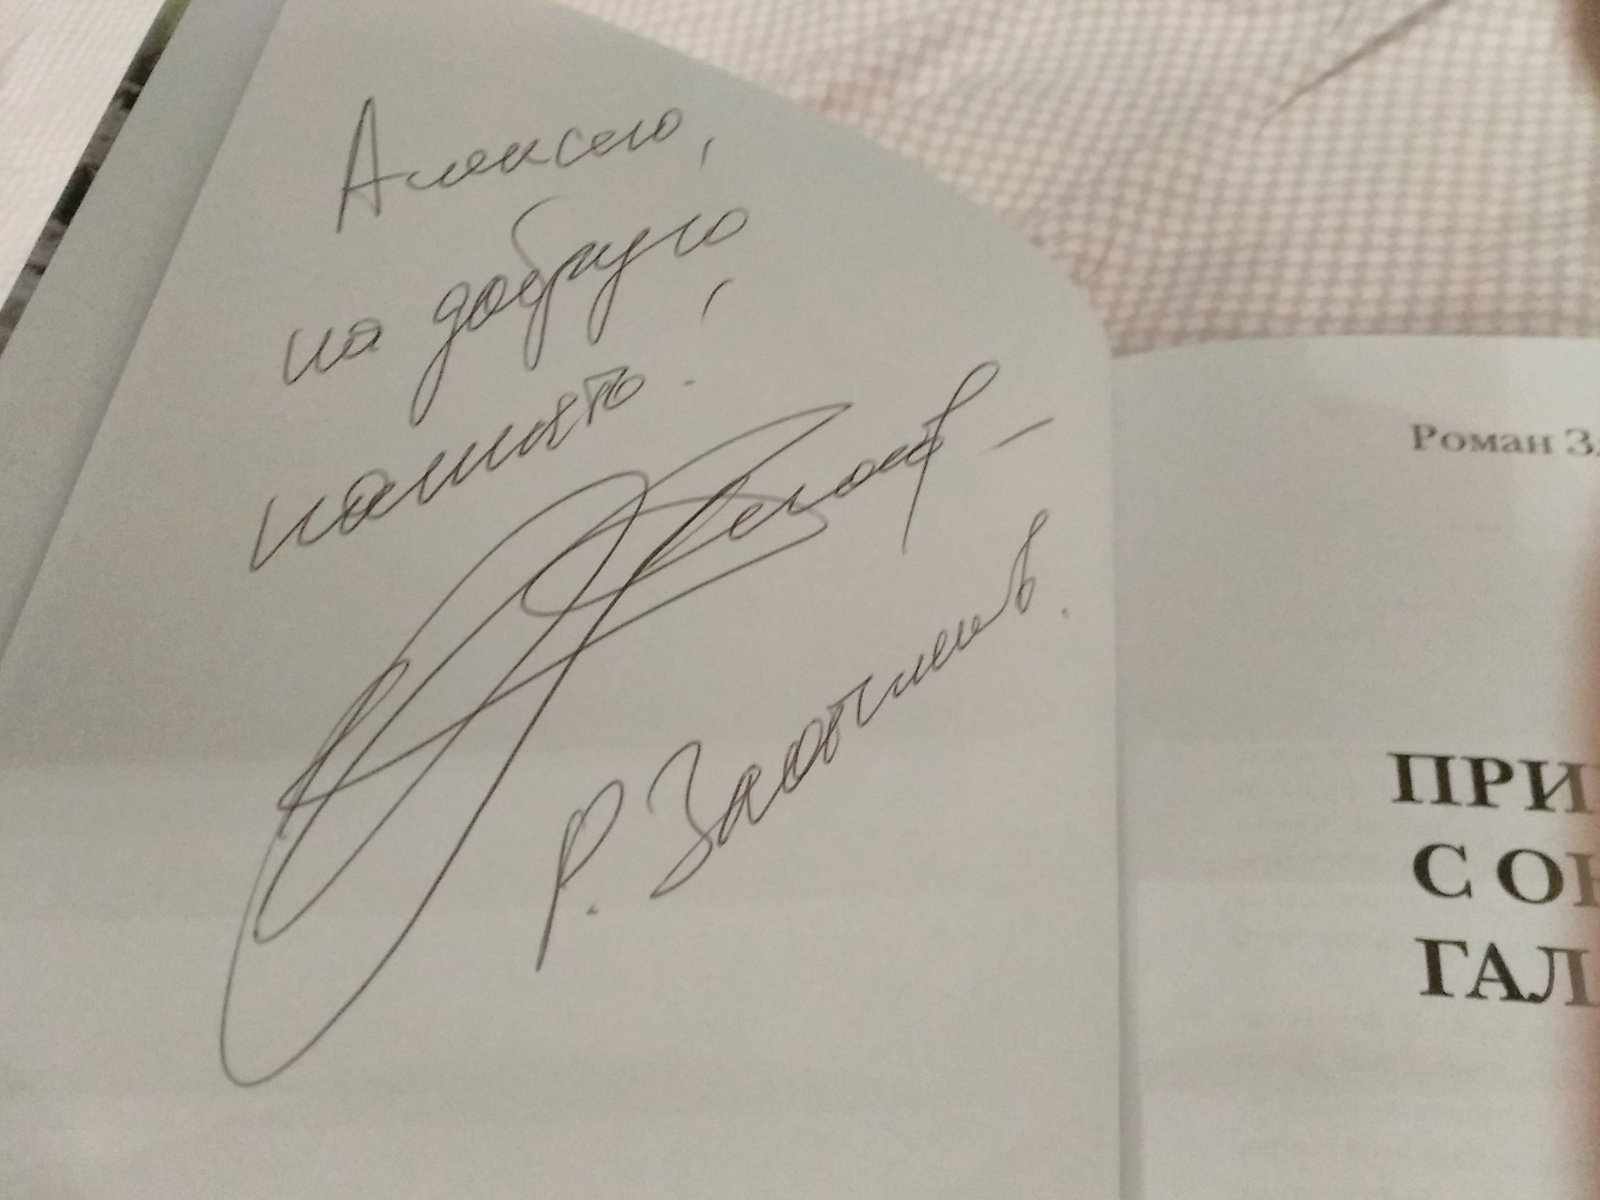 Алексею,
на добрую
память!
Р. Злотников.
Роман Зл
ПРИ
С ОБ
ГАЛ